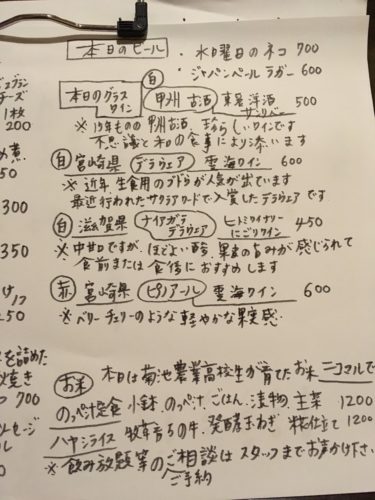 本日のビール ・水曜日のネコ 700
・ジャパンペールラガー 600
本日のグラスワイン
白 甲州 古酒 東晨洋酒 500
※15年ものの甲州古酒、珍らしいワインです
不思議と和の食事により添います
白 宮崎県 デラウェア 雲海ワイン 600
※近年、生食用のブドウが人気が出ています
最近行われたサクラアワードで入賞したデラウェアです
白 滋賀県 ナイアガラ デラウェア ヒトミワイナリー にごりワイン 450
※中甘ですが、ほどよい酸、果実の旨みが感じられて
食前または食後におすすめします
赤 宮崎県 ピノノアール 雲海ワイン 600
※ベリーチェリーのような軽やかな果実感.
お米 本日は菊池農業高校生が育てたお米 ニコマルで
のっぺ汁定食 小鉢、のっぺ汁、ごはん、漬物、主菜 1200
ハヤシライス 牧草育ちの牛、発酵玉ねぎ 糀仕立て 1200
※飲み放題等のご相談はスタッフまでお声かけ下さい
ご予約
チーズ
1枚
200
350
250
を詰めた
焼き
700